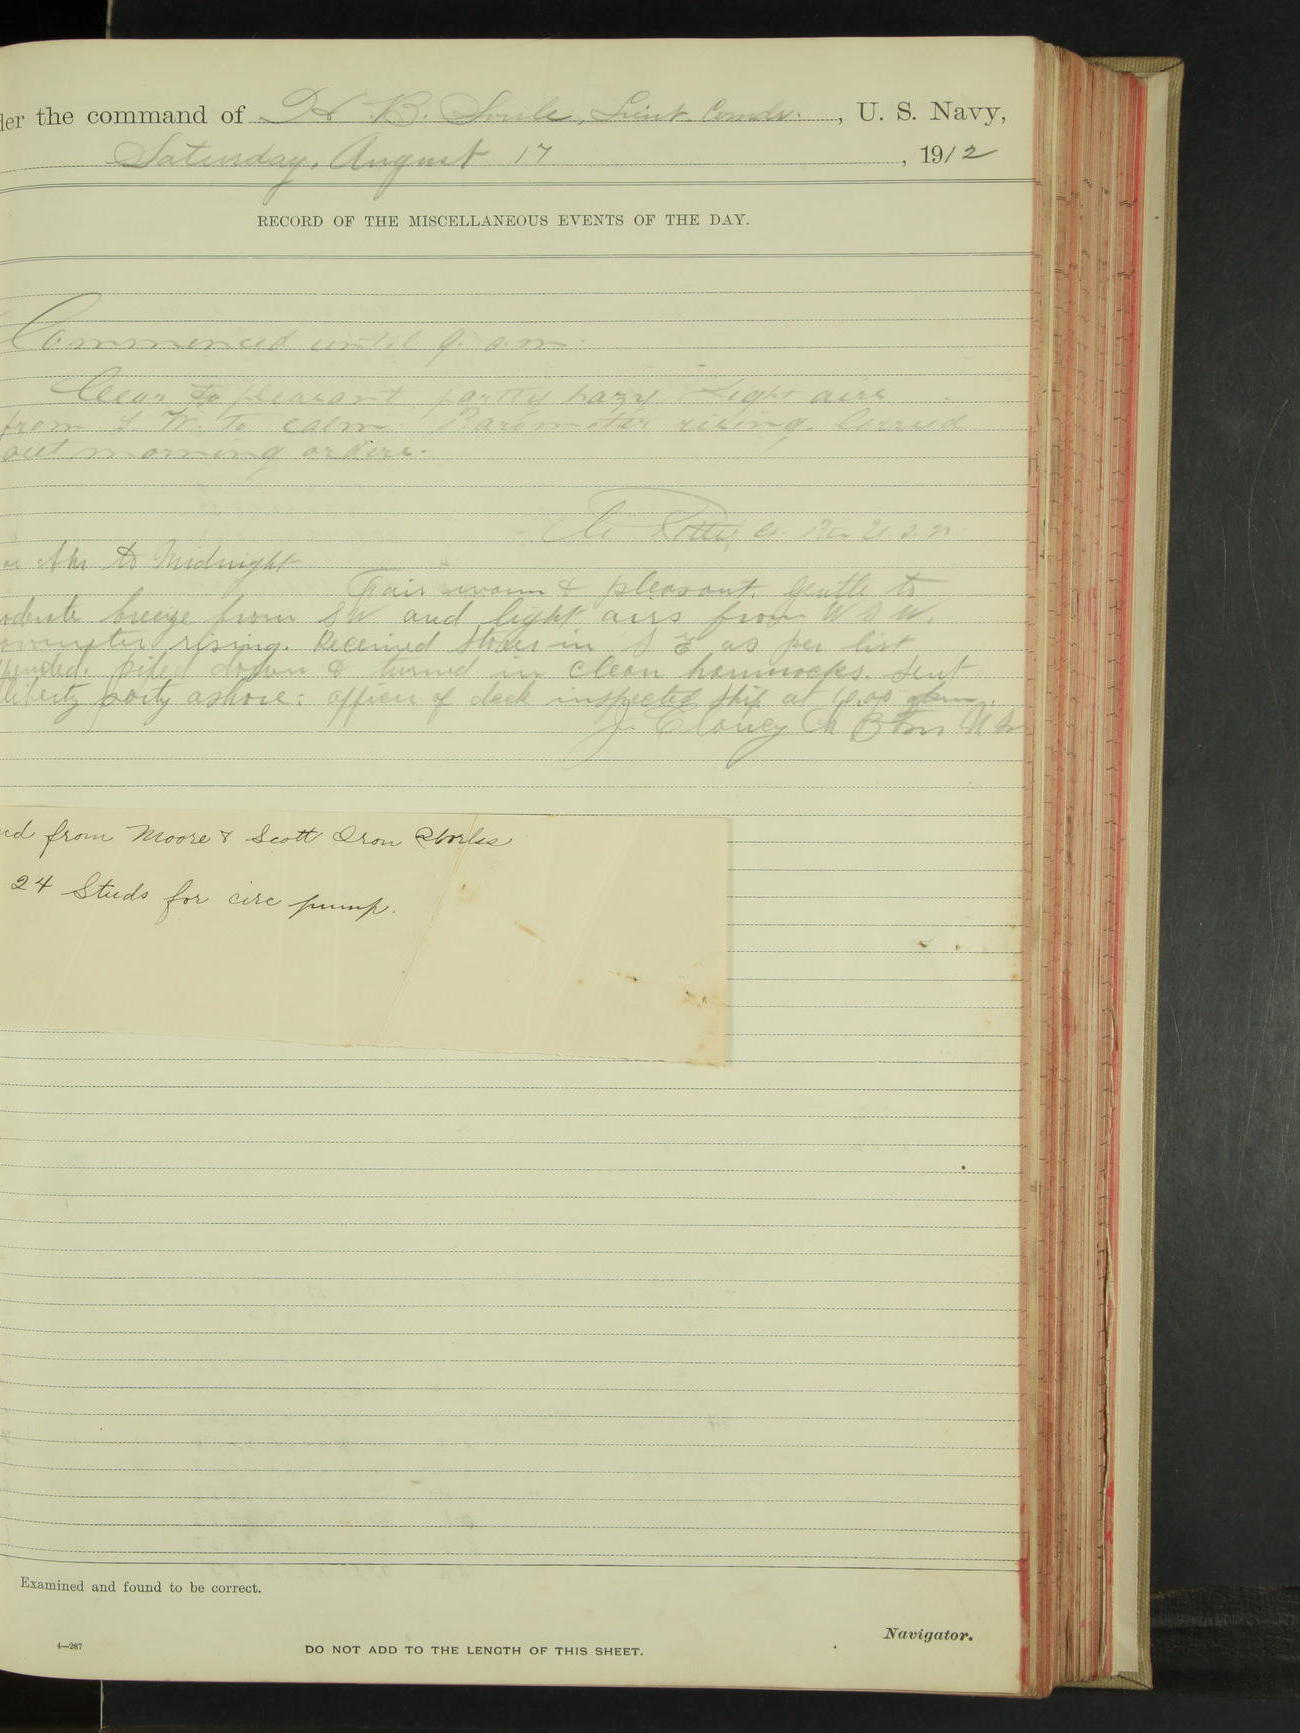 der the command of H. B. Soule, Lieut. Comdr., U. S. Navy,
Saturday, August 17, 1912
RECORD OF THE MISCELLANEOUS EVENTS OF THE DAY.
Commenced until 9. a.m.
Clear to pleasant, partly hazy. Light airs
from S. W. to calm. Barometer rising. Carried
out morning orders.
U.S.N.
to Midnight
Fair warm & pleasant. gentle to
breeze from SW and light airs from W S W.
rising. Received stores in S E as per list
piped down & turned in clean hammocks. Sent
liberty party ashore: officer of deck inspected ship at
from Moore & Scott Iron Works
24 Studs for circ pump.
Examined and found to be correct.
Navigator.
4—267
DO NOT ADD TO THE LENGTH OF THIS SHEET.